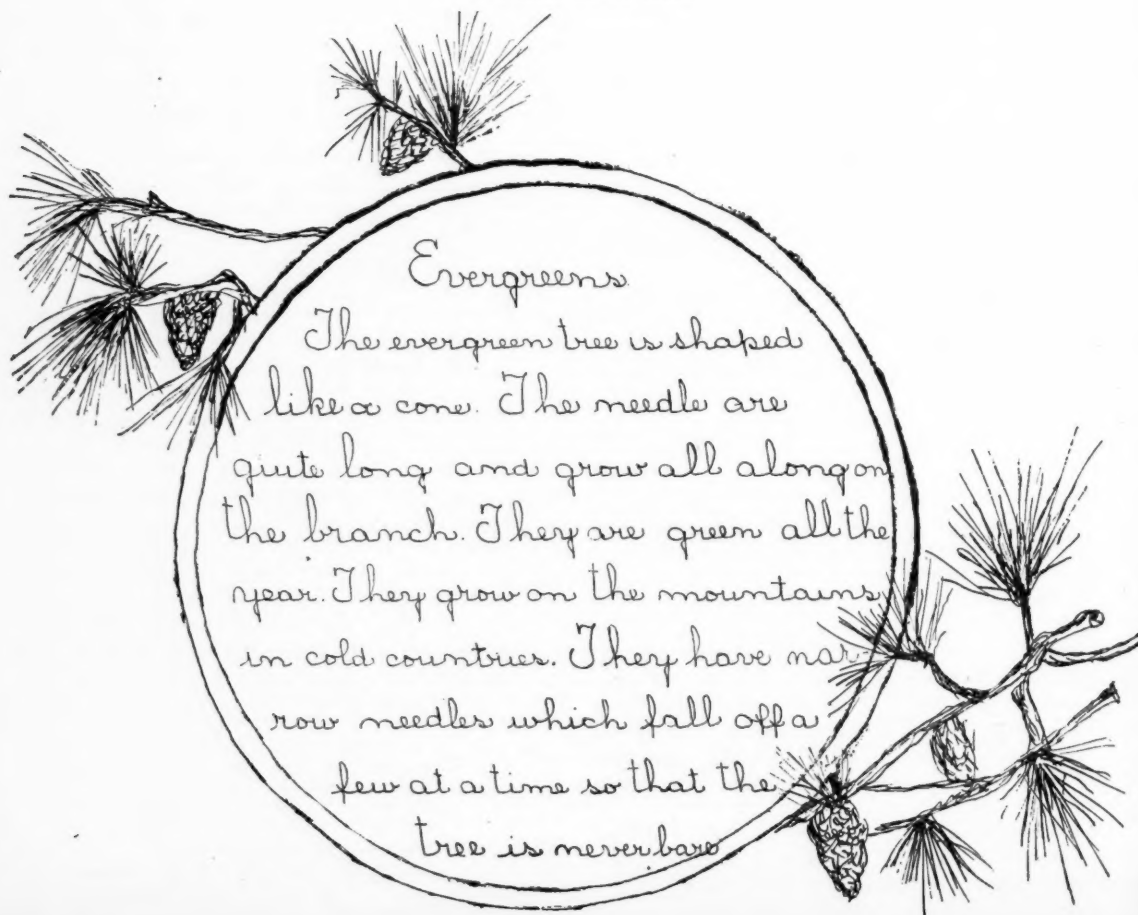 Evergreens
The evergreen tree is shaped
like a cone. The needle are
quite long and grow all along on
the branch. They are green all the
year. They grow on the mountains
in cold countries. They have nar
row needles which fall off a
few at a time so that the
tree is never bare